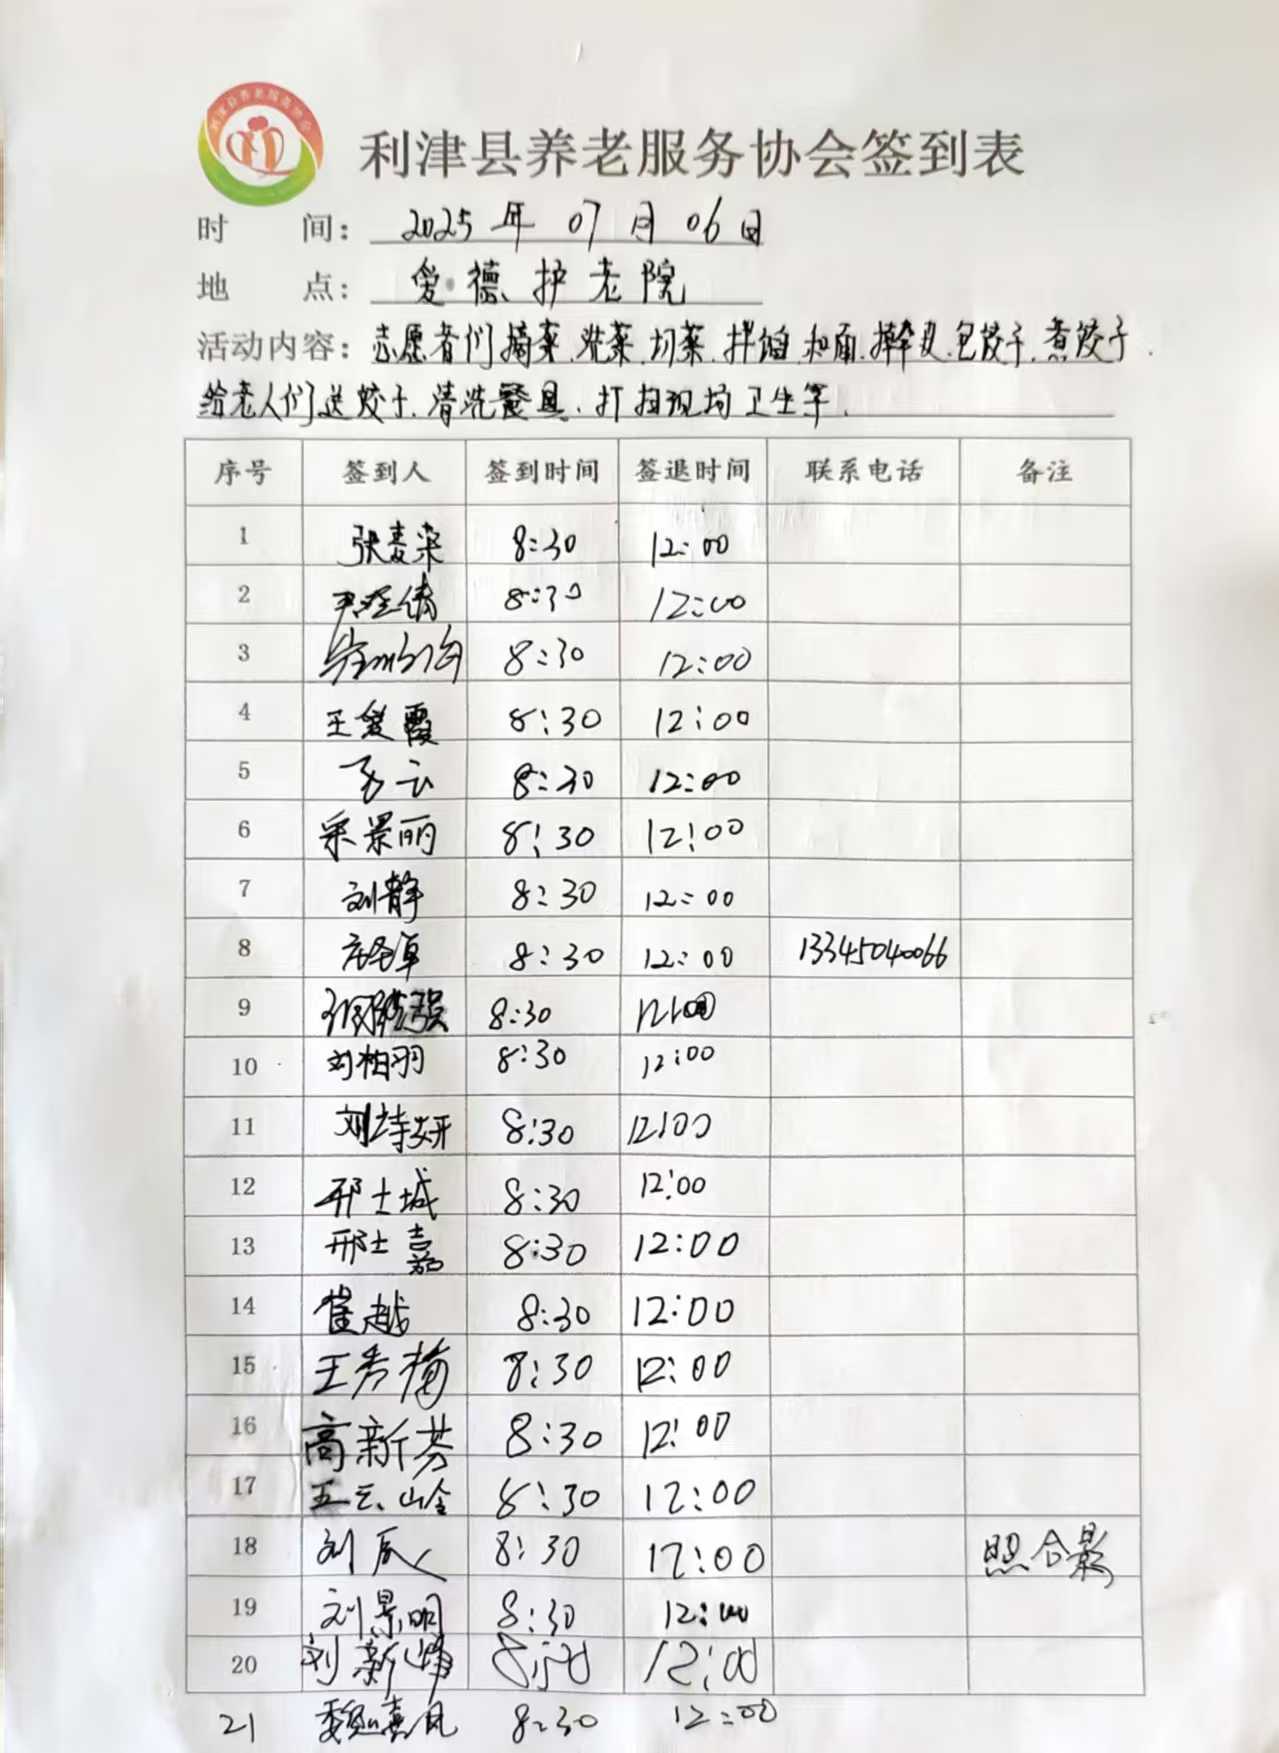 利津县养老服务协会
利津县养老服务协会签到表
时 间: 2025年07月06日
地 点: 爱德护老院
活动内容: 志愿者们摘菜、洗菜、切菜、拌馅、和面、擀皮、包饺子、煮饺子、
给老人们送饺子、清洗餐具、打扫现场卫生等.
序号 签到人 签到时间 签退时间 联系电话 备注
1 8:30 12:00
2 8:30 12:00
3 8:30 12:00
4 王爱霞 8:30 12:00
5 8:30 12:00
6 景丽 8:30 12:00
7 刘静 8:30 12:00
8 8:30 12:00 13345040066
9 8:30 12:00
10 刘柏羽 8:30 12:00
11 刘诗妍 8:30 12:00
12 邢士城 8:30 12:00
13 邢士嘉 8:30 12:00
14 崔越 8:30 12:00
15 王秀梅 8:30 12:00
16 高新芬 8:30 12:00
17 8:30 12:00
18 刘 8:30 12:00 照合影
19 刘景明 8:30 12:00
20 刘新峰 8:30 12:00
21 魏嘉凤 8:30 12:00